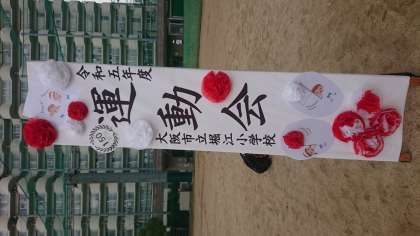 令和五年度
運動会
大阪市立堀江小学校